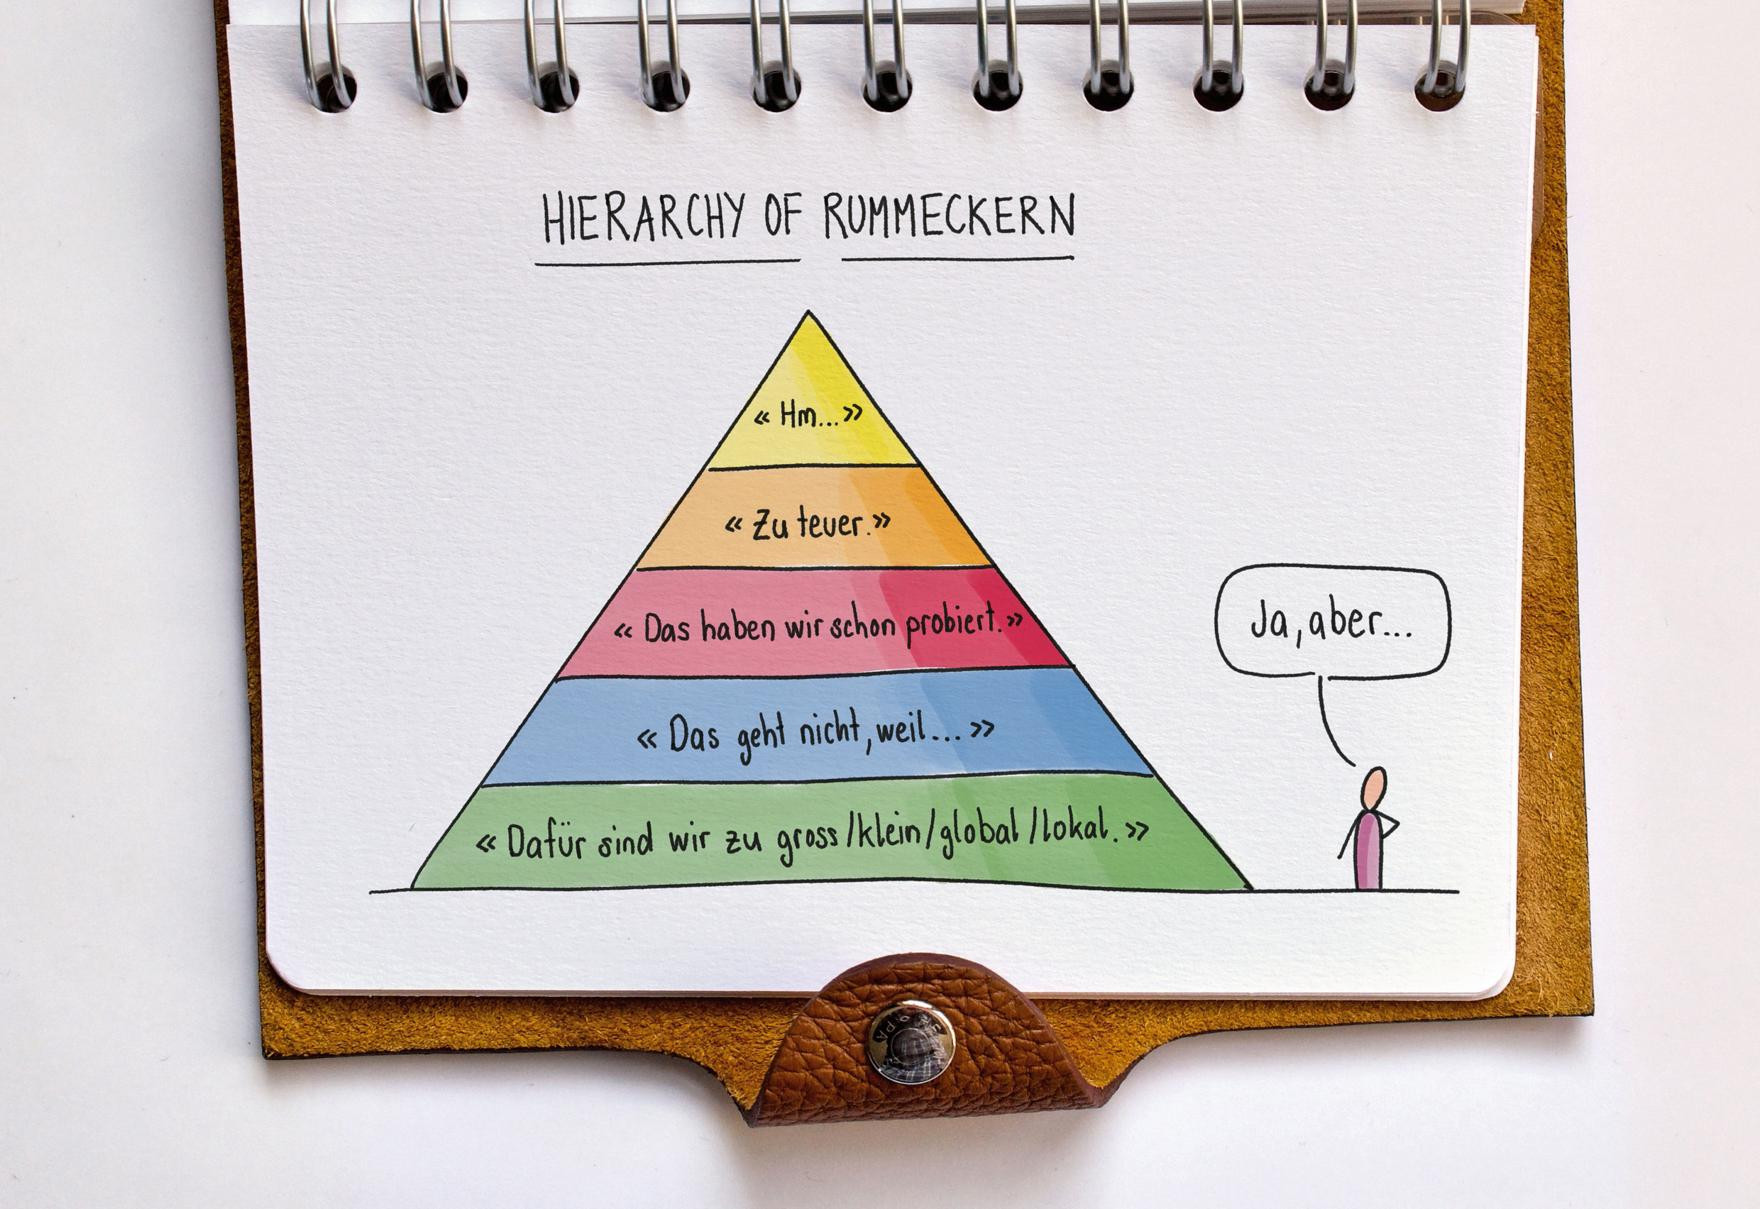 HIERARCHY OF RUMMECKERN
« Hm... »
« Zu teuer. »
« Das haben wir schon probiert. »
Ja, aber...
« Das geht nicht, weil... »
« Dafür sind wir zu gross/klein/global/lokal. »